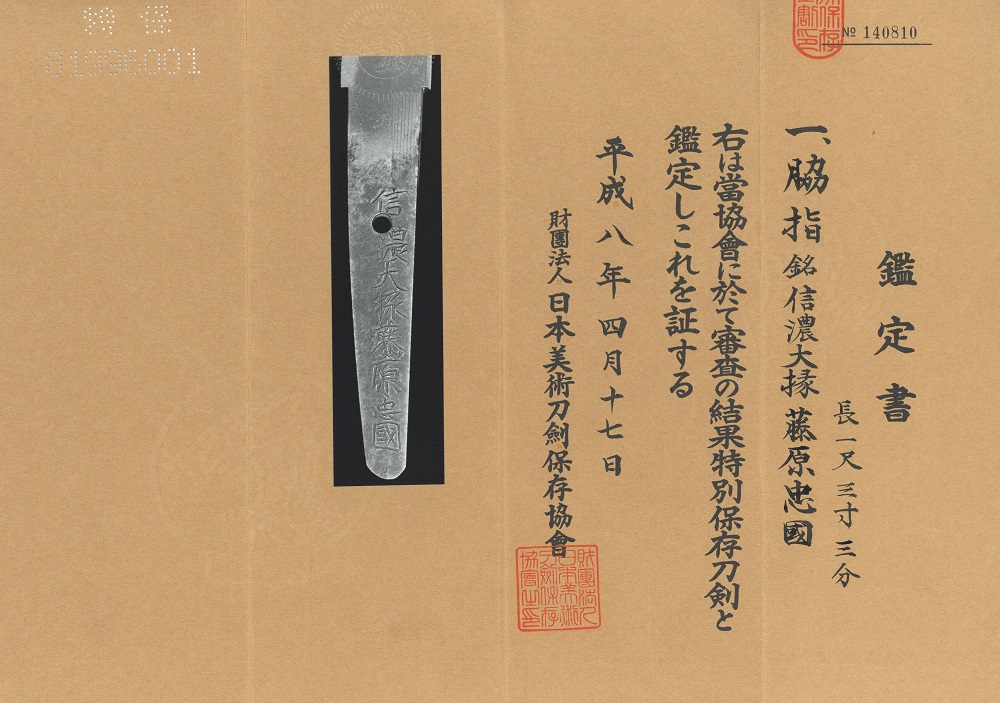 № 140810
鑑定書
一、脇指 銘 信濃大掾藤原忠國
長一尺三寸三分
右は當協會に於て審査の結果特別保存刀剣と
鑑定しこれを証する
平成八年四月十七日
財團法人日本美術刀劍保存協會
財團法人
日本美術
刀劍保存
協會之印
信濃大掾藤原忠國
特保
81996001